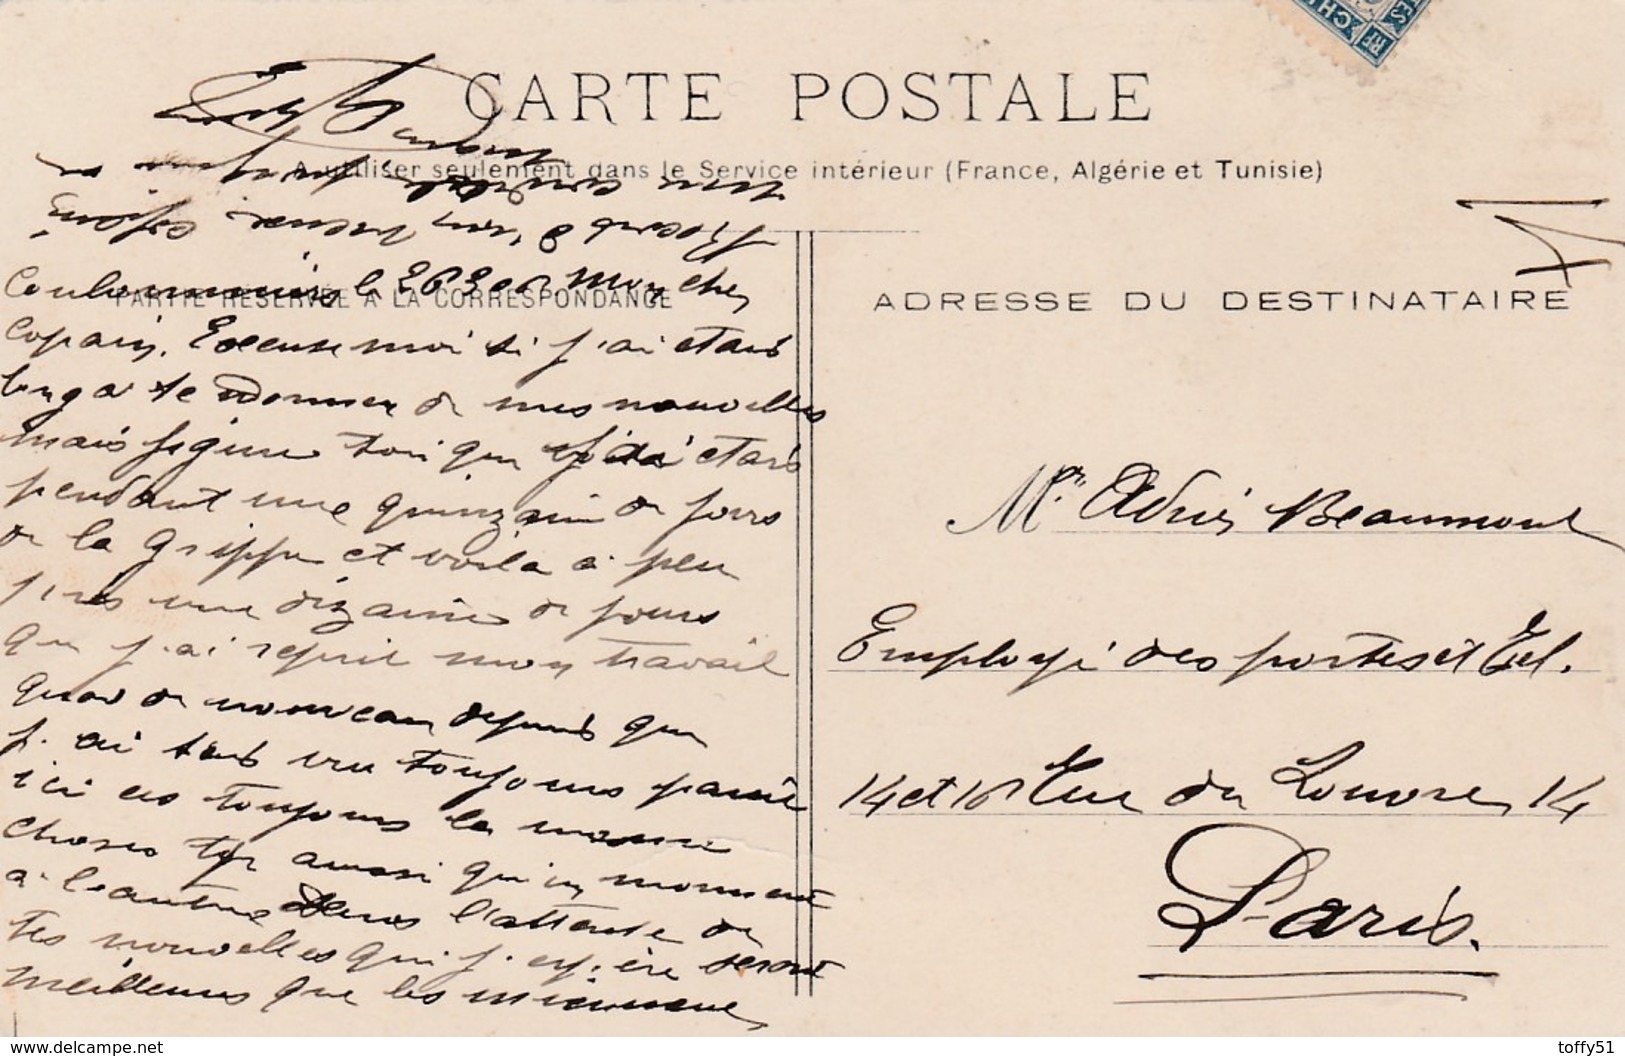 CHI
RF
TES
CARTE POSTALE
A utiliser seulement dans le Service intérieur (France, Algérie et Tunisie)
PARTIE RÉSERVÉE A LA CORRESPONDANCE
ADRESSE DU DESTINATAIRE
Coulommiers le Mon cher
Copain. Excuse moi si j'ai etais
long a te donner de mes nouvelles
mais figure toi que j'ai etais
pendant une quinzaine de jours
de la Grippe et voila a peu
près une dizaine de jours
que j'ai repris mon travail
Quoi de nouveau depuis que
j'ai tous vu toujours pareil
ici ces toujours la meme
choses aussi qu'un moment
a l'autre Dans l'attente de
tes nouvelles qui j'espère seront
meilleures que les miennes
Recois d'un vieux copain
une cordiale poignee
Mr. Beaumont
Employé des postes et Tel.
14 et 16 Rue du Louvre, 14
Paris.
delcampe.net
toffy51